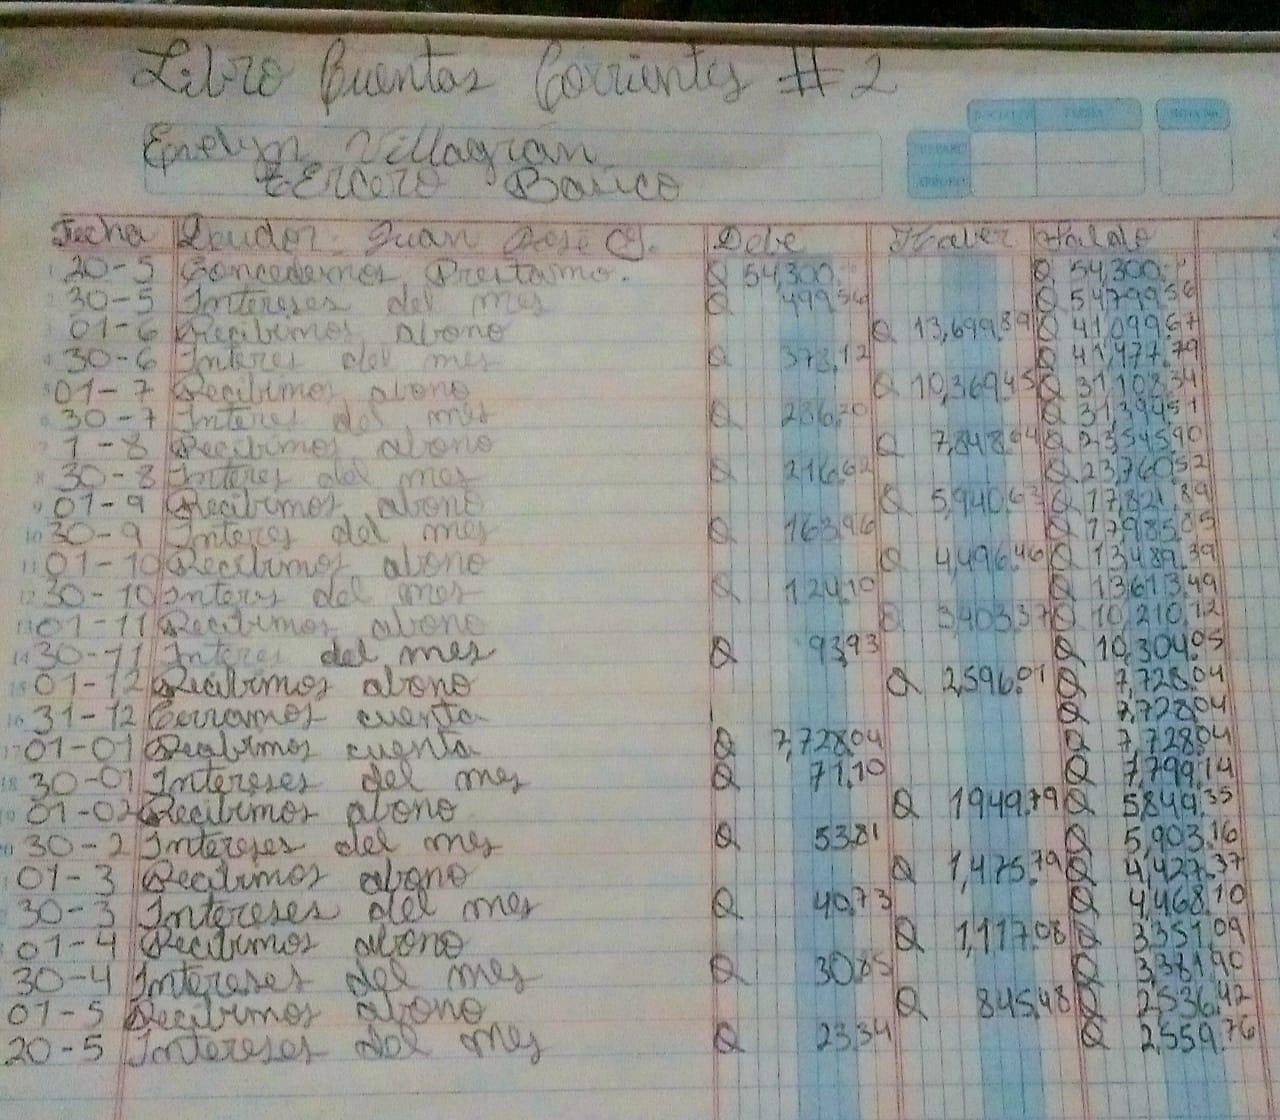 Libro Cuentas Corrientes #2
Evelyn Villagran
tercero Basico
Fecha Deudor: Juan José G. Debe Haver Saldo
20-5 Concedemos Prestamo. Q 54,300.- Q 54,300.-
30-5 Intereses del mes Q 499.56 Q 54799.56
01-6 Recibimos abono Q 13,699.89 Q 41,099.67
30-6 Interes del mes Q 378.12 Q 41,477.79
01-7 Recibimos abono Q 10,369.45 Q 31,108.34
30-7 Interes del mes Q 286.20 Q 31,394.51
1-8 Recibimos abono Q 7,848.64 Q 23,545.90
30-8 Interes del mes Q 216.62 Q 23,760.52
01-9 Recibimos abono Q 5,940.63 Q 17,821.89
30-9 Interes del mes Q 163.96 Q 17,985.85
01-10 Recibimos abono Q 4,496.46 Q 13,489.39
30-10 Interes del mes Q 124.10 Q 13613.49
01-11 Recibimos abono Q 3,403.37 Q 10,210.12
30-11 Interes del mes Q 93.93 Q 10,304.05
01-12 Recibimos abono Q 2,596.01 Q 7,728.04
31-12 Cerramos cuenta Q 7,728.04
01-01 Reabrimos cuenta Q 7,728.04 Q 7,728.04
30-01 Intereses del mes Q 71.10 Q 7,799.14
01-02 Recibimos abono Q 1949.79 Q 5849.35
30-2 Intereses del mes Q 53.81 Q 5,903.16
01-3 Recibimos abono Q 1,475.79 Q 4,427.37
30-3 Intereses del mes Q 40.73 Q 4,468.10
01-4 Recibimos abono Q 1,117.08 Q 3351.09
30-4 Intereses del mes Q 30.85 Q 3,381.90
01-5 Recibimos abono Q 845.48 Q 2,536.42
20-5 Intereses del mes Q 23.34 Q 2,559.76